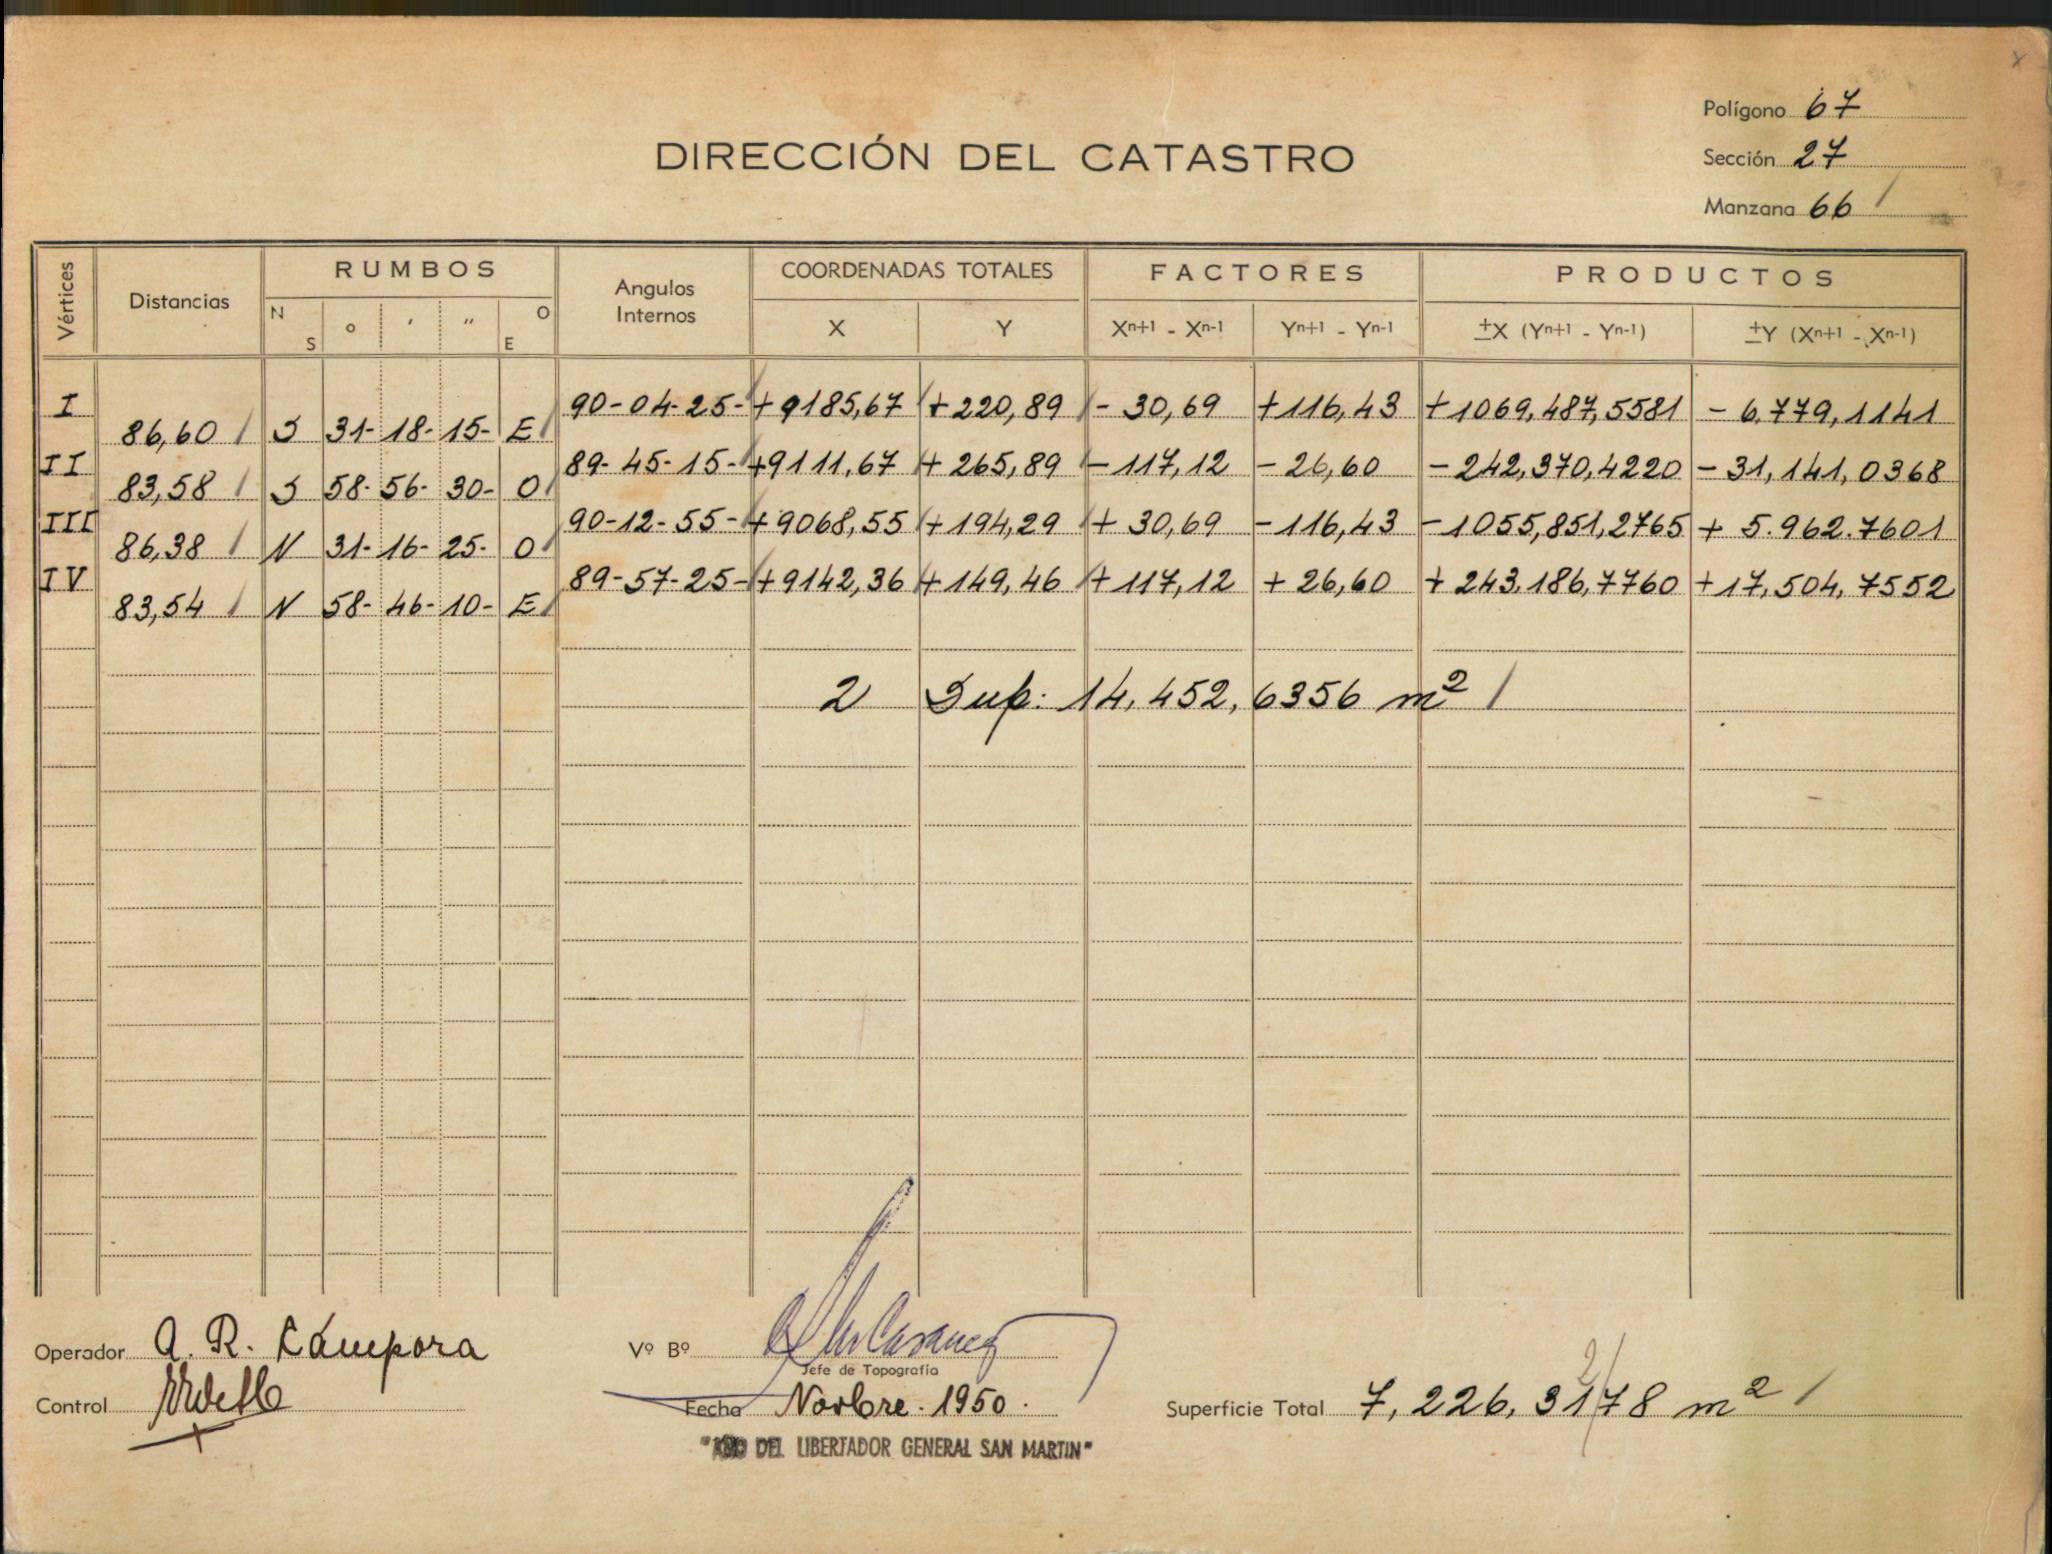 Polígono 67
DIRECCIÓN DEL CATASTRO
Sección 27
Manzana 66 /
Vértices Distancias RUMBOS Angulos Internos COORDENADAS TOTALES FACTORES PRODUCTOS
N S ° ' " O E X Y Xn+1 - Xn-1 Yn+1 - Yn-1 ±X (Yn+1 - Yn-1) ±Y (Xn+1 - Xn-1)
I 90-04-25- +9185,67 +220,89 - 30,69 +116,43 +1069,487,5581 - 6.779,1141
86,60 / S 31- 18- 15- E/
II 89-45-15- +9111,67 + 265,89 - 117,12 - 26,60 - 242,370,4220 - 31,141,0368
83,58 / S 58- 56- 30- O/
III 90-12-55- + 9068,55 + 194,29 + 30,69 - 116,43 - 1055,851,2765 + 5.962.7601
86,38 / N 31- 16- 25- O/
IV 89-57-25- +9142,36 + 149,46 + 117,12 + 26,60 + 243.186,7760 +17,504,7552
83,54 / N 58- 46- 10- E/
2 Sup: 14,452,6356 m2 /
Operador A. R. Cámpora Vº Bº
Jefe de Topografía
Control Fecha Novbre. 1950. Superficie Total 7,226,3178 m2 /
2/
DEL LIBERTADOR GENERAL SAN MARTIN"